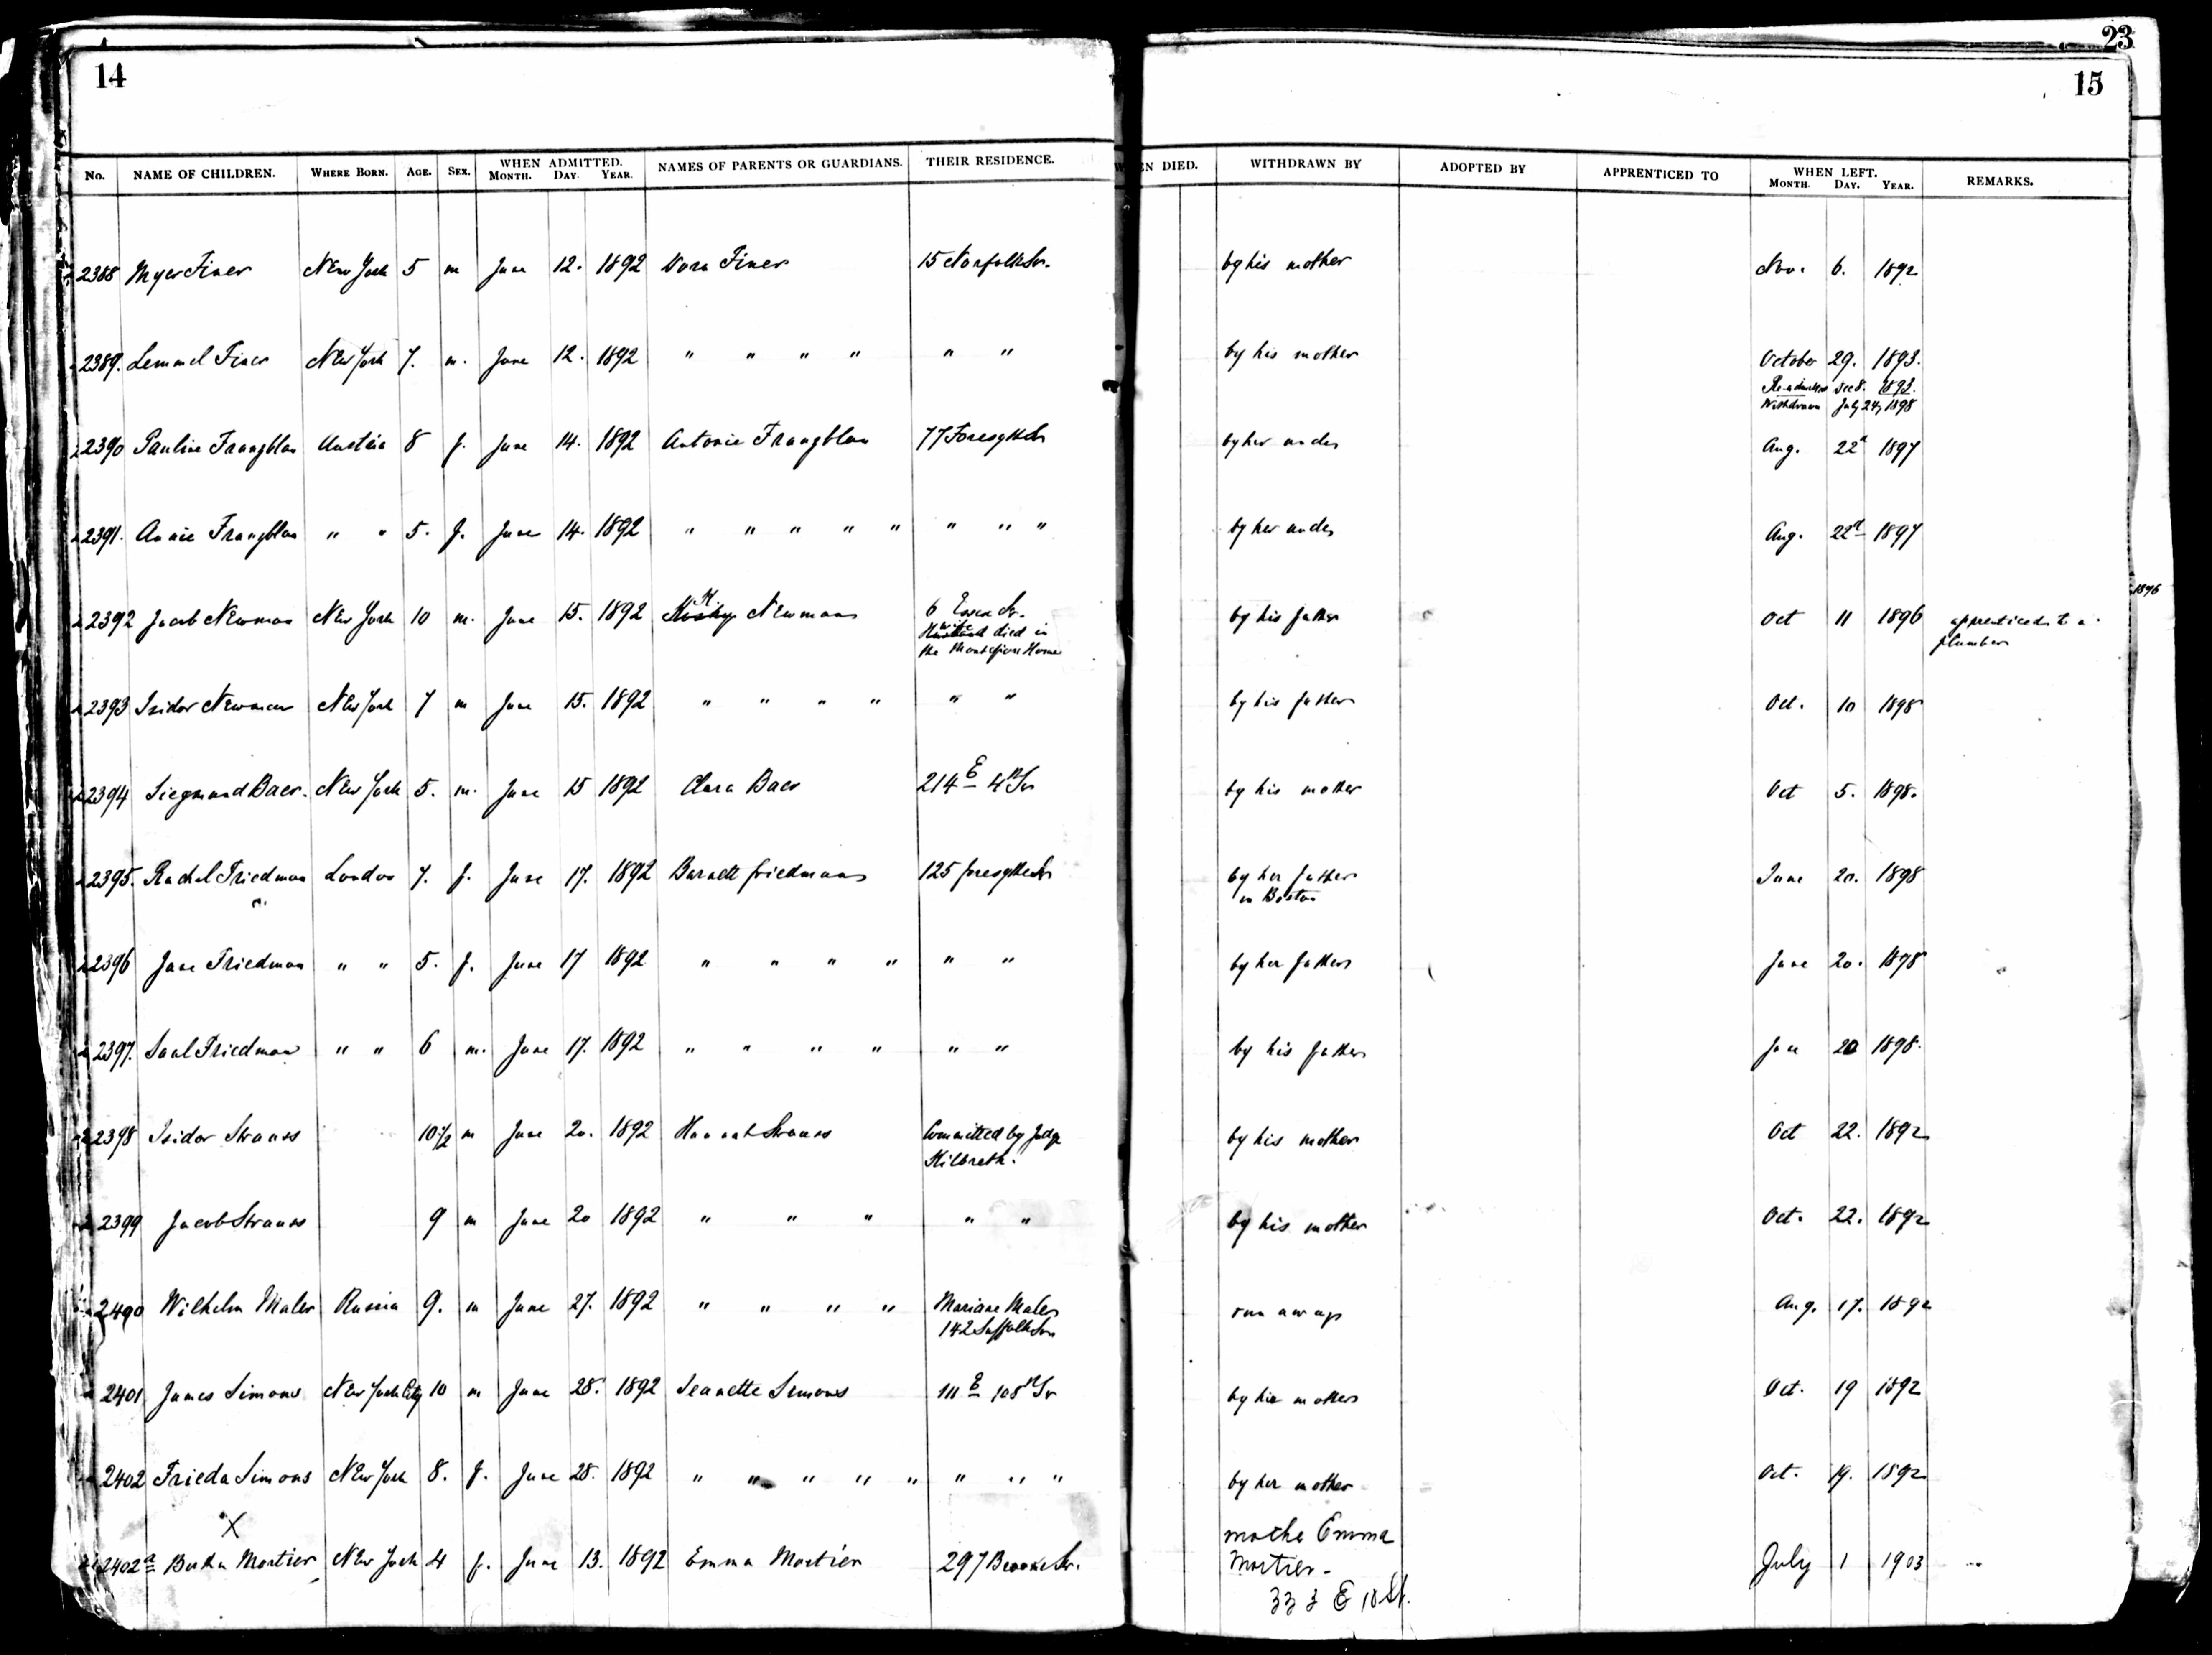 14
23
15
No. NAME OF CHILDREN. WHERE BORN. AGE. SEX. WHEN ADMITTED. MONTH. DAY. YEAR. NAMES OF PARENTS OR GUARDIANS. THEIR RESIDENCE. EN DIED. WITHDRAWN BY ADOPTED BY APPRENTICED TO WHEN LEFT. MONTH. DAY. YEAR. REMARKS.
2388 Myer Finer New York 5 m June 12. 1892 Dora Finer 15 Norfolk Str. by his mother Nov. 6. 1892
2389. Lemmel Finer New York 7. m. June 12. 1892 " " " " " " by his mother October 29. 1893.
Readmitted Dec 8. 1893.
Withdrawn July 24, 1898
2390 Pauline Frangblau Austria 8 f. June 14. 1892 Antonie Frangblau 77 Foresyth Str by her uncle Aug. 22d 1897
2391. Annie Frangblau " " 5. f. June 14. 1892 " " " " " " " " by her uncle Aug. 22d 1897
1896
2392 Jacob Newman New York 10 m. June 15. 1892 H. Newman 6 Essex Str. by his father Oct 11 1896 apprenticed to a
wife died in plumber
the Montefiore Home
2393 Isidor Newman New York 7 m June 15. 1892 " " " " " " by his father Oct. 10 1898
2394 Siegmund Baer. New York 5. m. June 15 1892 Clara Baer 214 E 4th Str by his mother Oct 5. 1898.
2395. Rachel Friedman London 7. f. June 17. 1892 Barnett friedman 125 foresythe Str by her father June 20. 1898
in Boston
2396 Jane Friedman " " 5. f. June 17 1892 " " " " " " by her father June 20. 1898
2397. Saul Friedman " " 6 m. June 17. 1892 " " " " " " by his father June 20 1898.
2398 Isidor Strauss 10 1/2 m June 20. 1892 Hannah Strauss Committed by Judge by his mother Oct 22. 1892
Kilbreth.
2399 Jacob Strauss 9 m June 20 1892 " " " " " by his mother Oct. 22. 1892
2400 Wilhelm Maler Russia 9. m June 27. 1892 " " " " Mariane Maler run away Aug. 17. 1892
142 Suffolk Str
2401 James Simons New York City 10 m June 28. 1892 Jeanette Simons 111 E 108th Str by his mother Oct. 19 1892
2402 Frieda Simons New York 8. f. June 28. 1892 " " " " " " " " by her mother Oct. 19. 1892
X
2402a Bertha Mortier New York 4 f. June 13. 1892 Emma Mortier 297 Broome Str. mothe Emma
Mortier - July 1 1903
333 E 10 St.